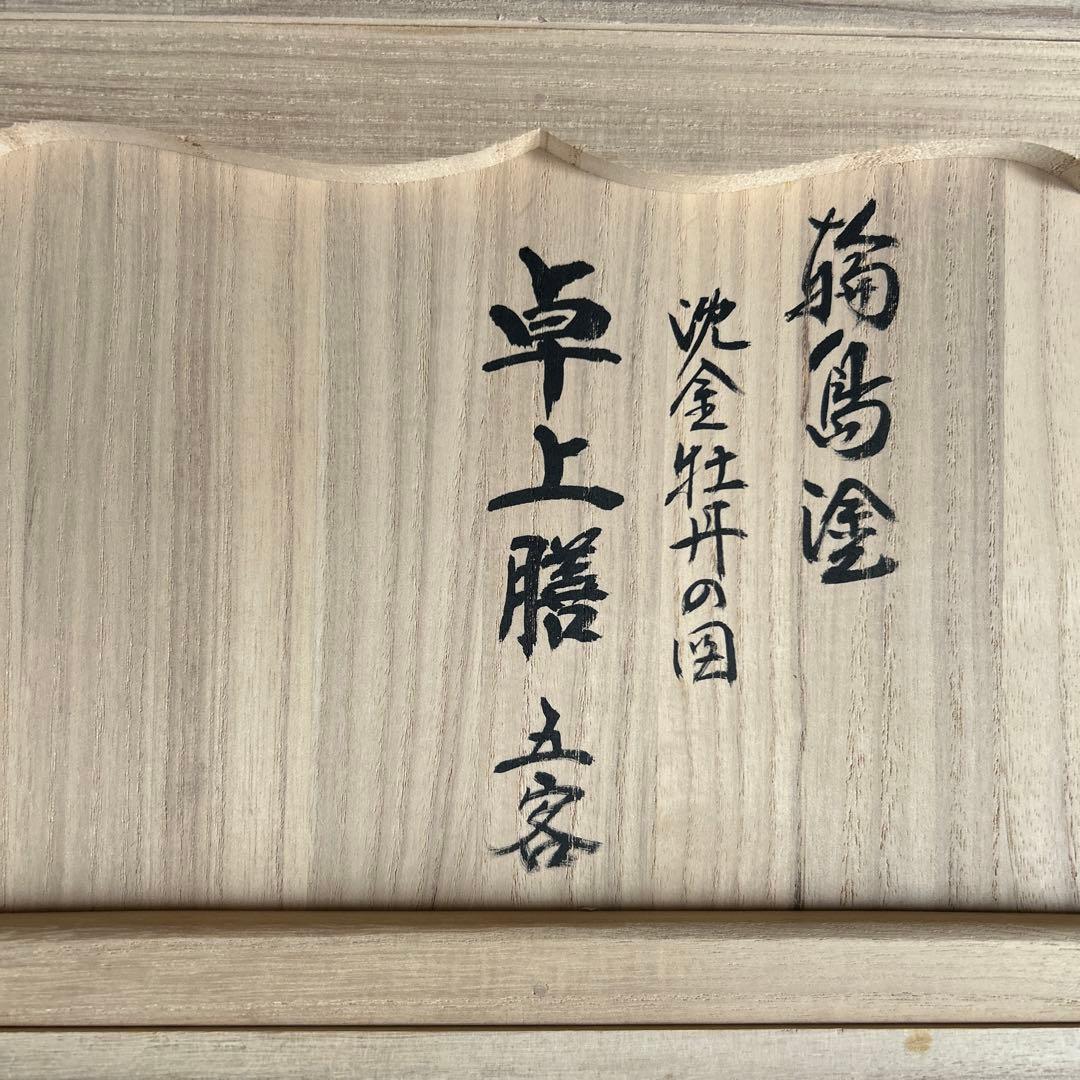 輪島塗
沈金牡丹の図
卓上膳 五客